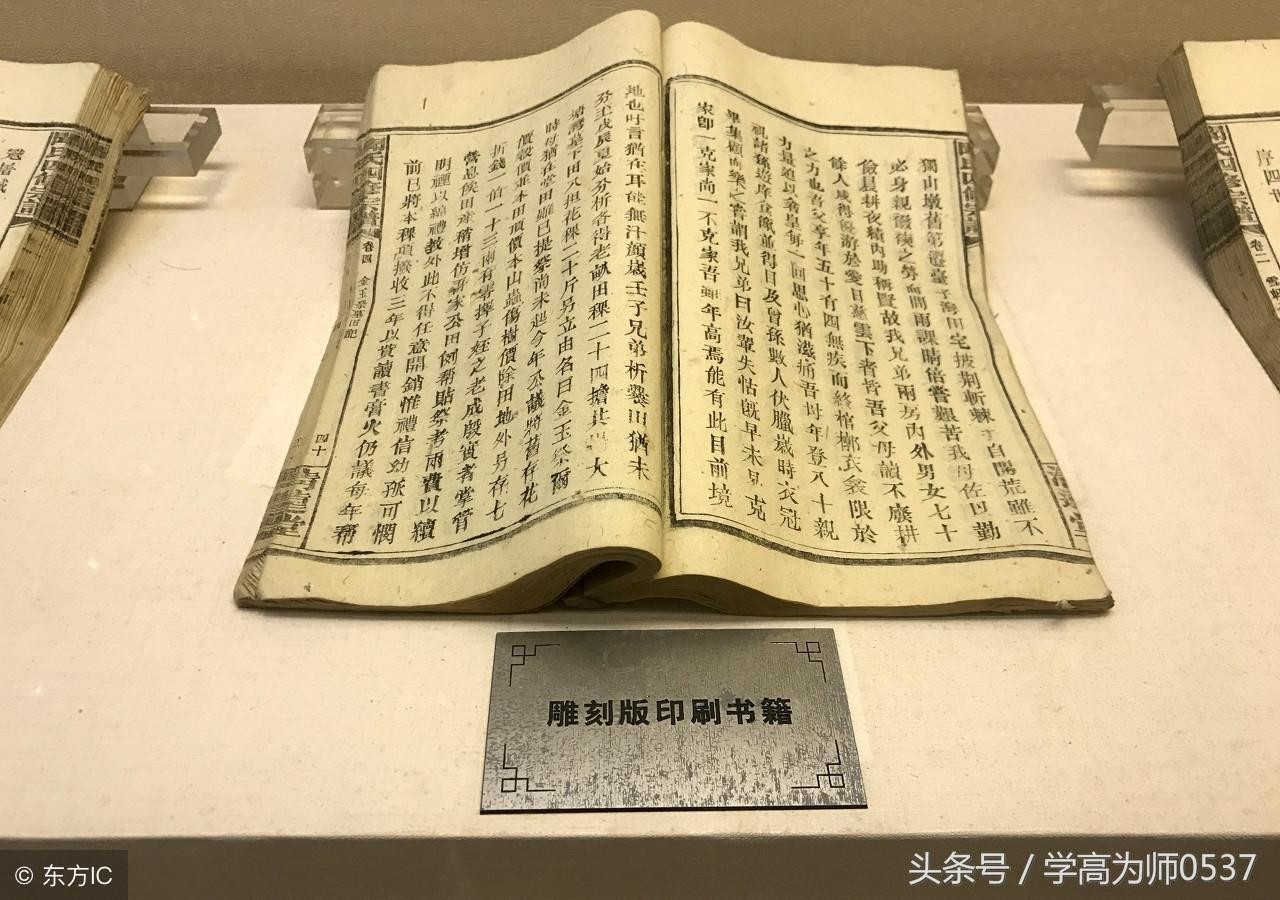 獨山墩舊第澹臺子海田宅披荆斬棘于自陽荒雖不
必身親綴襏之勞而問雨課晴倍嘗艱苦我母佐以勤
儉晨耕夜績內助稱賢故我兄弟兩房內外男女七十
餘人咸得優游於愛日慈雲下者皆吾父母韻不廢耕
之力也吾父享年五十有四無疾而終棺槨衣衾限於
力量過以為皇每一回思心猶滋痛吾母年登八十親
視諸孫遊庠食餼並得目及曾孫數人伏臘歲時衣冠
畢集顧而樂之嘗謂我兄弟曰汝輩失怙旣早未見克
家卽一克家尚一不克家吾雖年高焉能有此目前境
地也吁言猶在耳能無汁顏歲壬子兄弟析爨田猶未
分至戊辰夏始分析各得老畝田稞二十四擔其大
塘灣墓下田八担花稞二十斤另立由名曰金玉祭爾
時母猶在堂田雖已提祭尚未起今年公議將舊存花
價穀價並本田頂價本山蟲傷樹價除田地外另存七
折錢一伯一十三兩有零擇子姪之老成殷實者掌管
營息俟田產稍增仿訴家公田例幫貼祭考兩費以續
明禋以綿禮教外此不得任意開銷惟禮信幼孤可憫
前已將本稞項撥收三年以資讀書膏火仍議每年幫
陶氏四修宗譜
卷四
金玉祭墓田記
四十
卷二
序
雕刻版印刷书籍
© 东方IC
头条号 / 学高为师0537